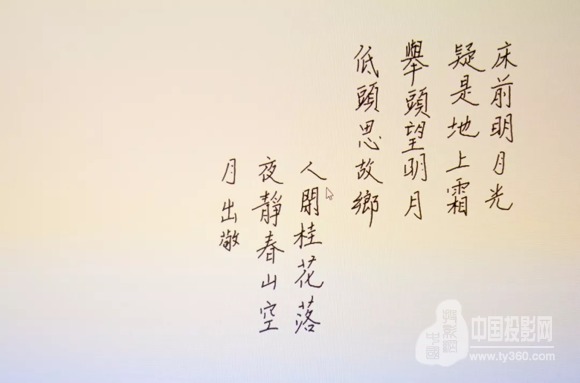 床前明月光
疑是地上霜
舉頭望明月
低頭思故鄉
人閒桂花落
夜靜春山空
月出敬
中国投影网
www.ty360.com